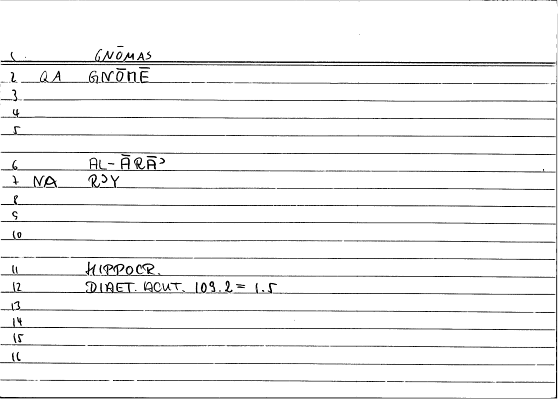 1 GNŌMAS
2 QA GNŌMĒ
3
4
5
6 AL-ĀRĀʾ
7 NA RʾY
8
9
10
11 HIPPOCR.
12 DIAET. ACUT. 109.2 = 1.5
13
14
15
16